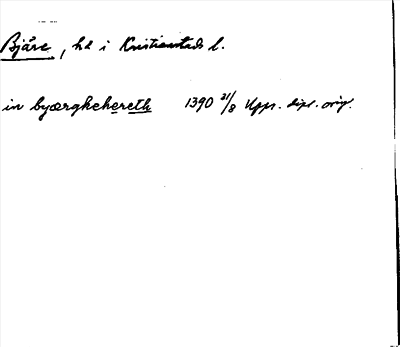 Bjäre, hd i Kristianstads l.
in byærghehereth 1390 31/8 Upps. dipl. orig.